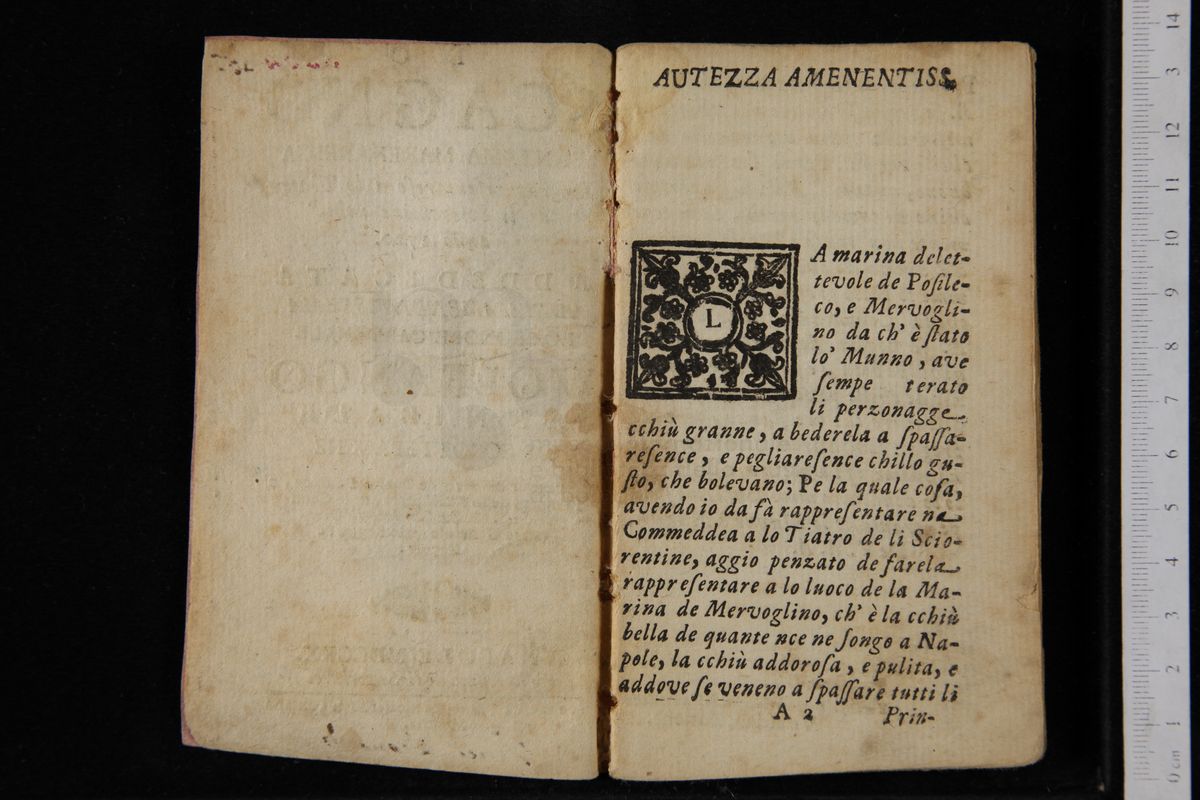 AUTEZZA AMENENTISS.
LA marina delet-
tevole de Posile-
co, e Mervogli-
no da ch' è stato
lo' Munno, ave
sempe terato
li perzonagge
cchiù granne, a bederela a spassa-
resence, e pegliaresence chillo gu-
sto, che bolevano; Pe la quale cosa,
avendo io da fà rappresentare na
Commeddea a lo Tiatro de li Scio-
rentine, aggio penzato de farela
rappresentare a lo luoco de la Ma-
rina de Mervoglino, ch' è la cchiù
bella de quante nce ne songo a Na-
pole, la cchiù addorosa, e pulita, e
addove se veneno a spassare tutti li
A 2 Prin-
14
3
12
11
10
9
8
7
6
5
4
3
2
1
0 cm